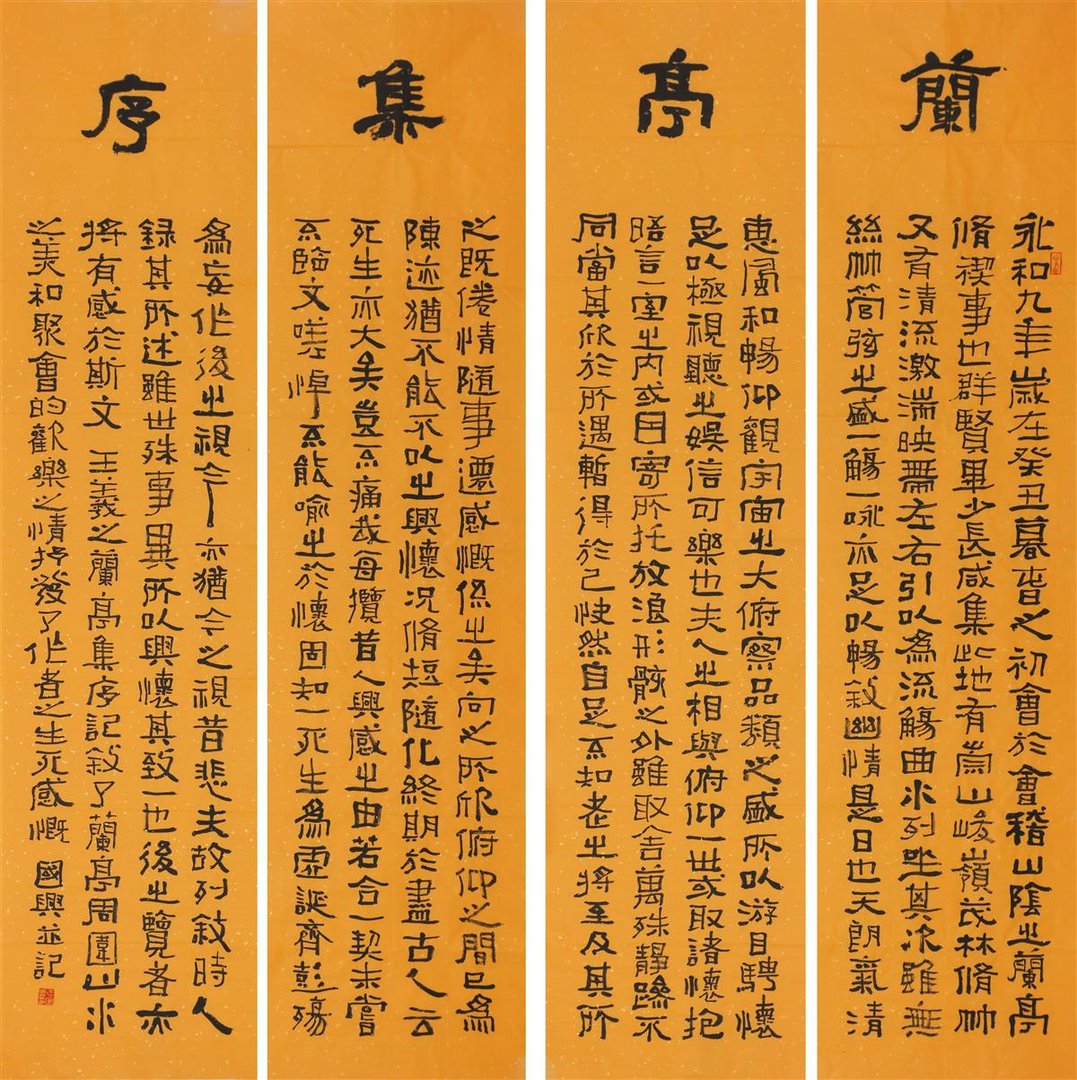 蘭亭集序
永和九年歲在癸丑暮春之初會於會稽山陰之蘭亭
脩禊事也群賢畢少長咸集此地有崇山峻嶺茂林脩竹
又有清流激湍映帶左右引以爲流觴曲水列坐其次雖無
絲竹管弦之盛一觴一咏亦足以暢敘幽情是日也天朗氣清
惠風和暢仰觀宇宙之大俯察品類之盛所以游目騁懷
足以極視聽之娛信可樂也夫人之相與俯仰一世或取諸懷抱
晤言一室之內或因寄所托放浪形骸之外雖取舍萬殊靜躁不
同當其欣於所遇暫得於己快然自足不知老之將至及其所
之既倦情隨事遷感慨係之矣向之所欣俯仰之間已爲
陳迹猶不能不以之興懷況脩短隨化終期於盡古人云
死生亦大矣豈不痛哉每攬昔人興感之由若合一契未嘗
不臨文嗟悼不能喻之於懷固知一死生爲虛誕齊彭殤
爲妄作後之視今亦猶今之視昔悲夫故列敘時人
錄其所述雖世殊事異所以興懷其致一也後之覽者亦
將有感於斯文 王羲之蘭亭集序記敘了蘭亭周圍山水
之美和聚會的歡樂之情抒發了作者之生死感慨 國興並記